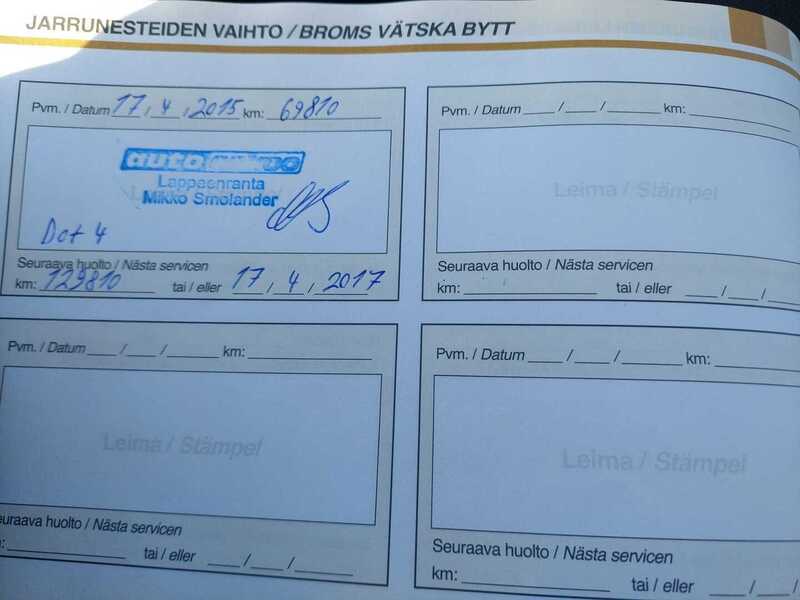 JARRUNESTEIDEN VAIHTO / BROMS VÄTSKA BYTT
Pvm. / Datum 17, 4, 2015 km: 69810
auto
Lappeenranta
Mikko Smolander
Dot 4
Seuraava huolto / Nästa servicen
km: 129810 tai / eller 17 / 4 / 2017
Pvm. / Datum ___/___/______ km:
Leima / Stämpel
Seuraava huolto / Nästa servicen
km: tai / eller ___/___/___
Pvm. / Datum ___/___/______ km:
Leima / Stämpel
Seuraava huolto / Nästa servicen
tai / eller ___/___/______
Pvm. / Datum ___/___/______ km:
Leima / Stämpel
Seuraava huolto / Nästa servicen
km: tai / eller ___/___/___